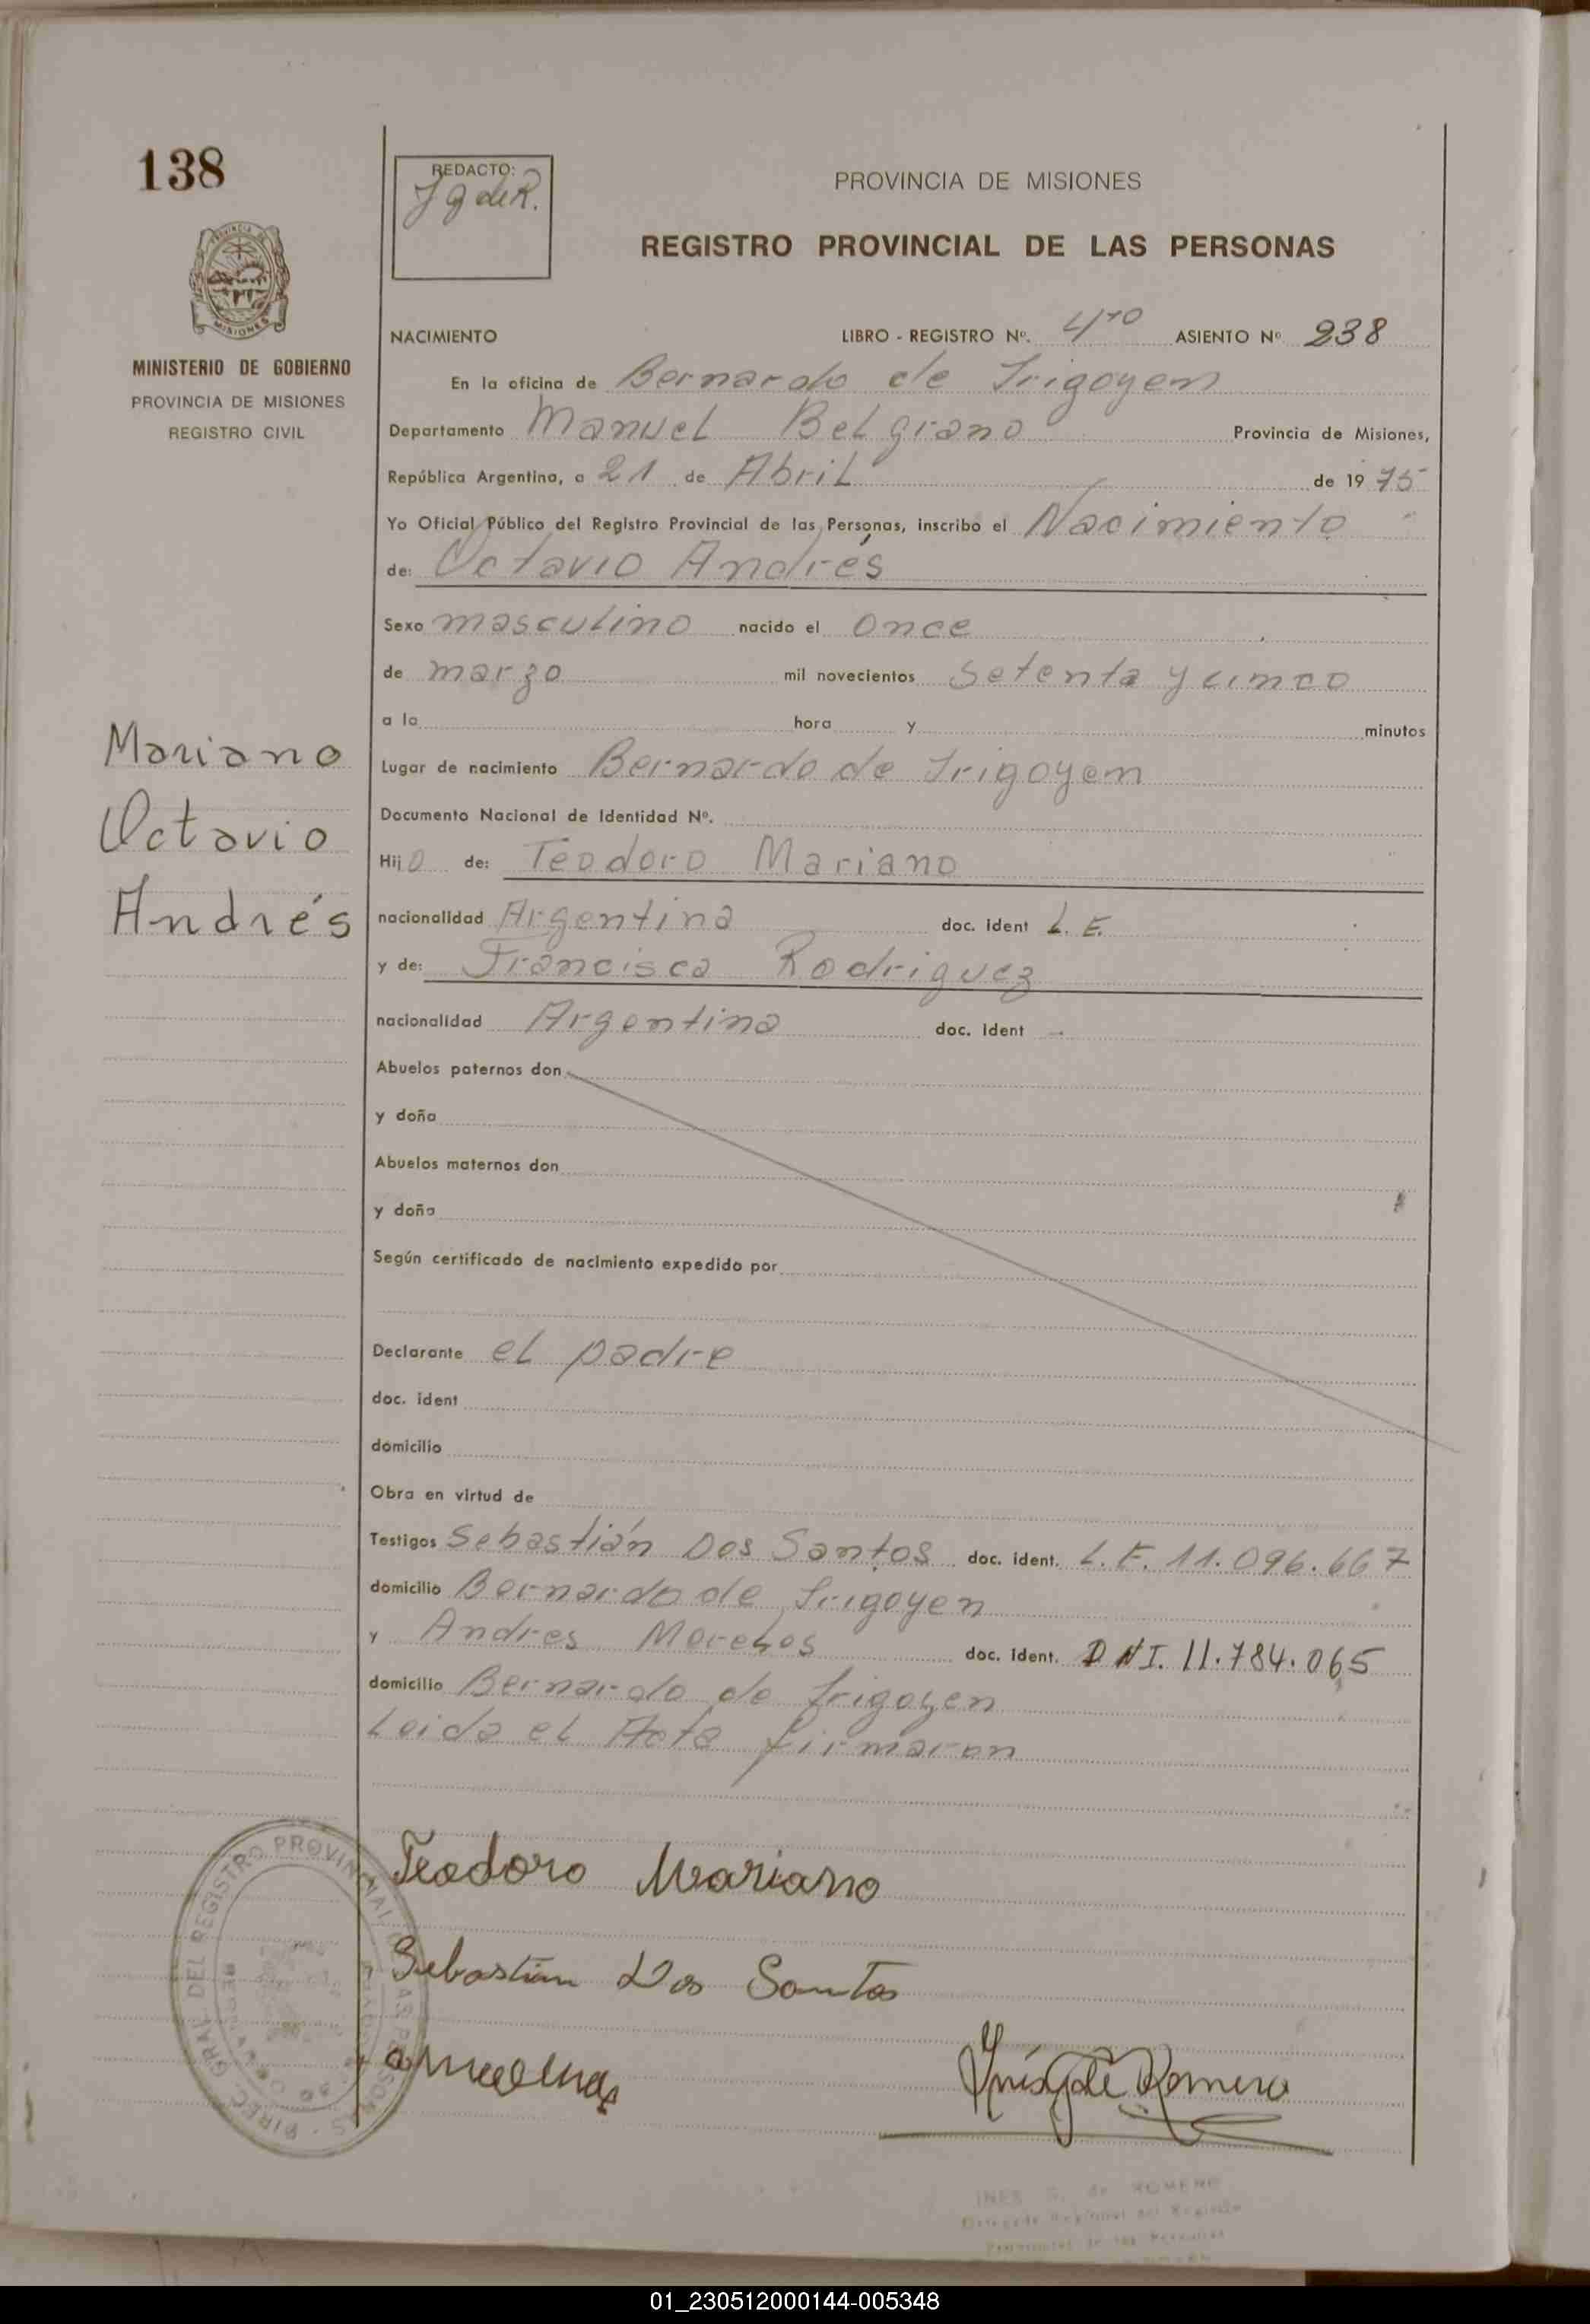 138
REDACTO:
J g de R.
PROVINCIA DE MISIONES
REGISTRO PROVINCIAL DE LAS PERSONAS
PROVINCIA DE
MISIONES
MINISTERIO DE GOBIERNO
PROVINCIA DE MISIONES
REGISTRO CIVIL
NACIMIENTO LIBRO - REGISTRO Nº. 4to ASIENTO Nº 238
En la oficina de Bernardo de Irigoyen
Departamento Manuel Belgrano Provincia de Misiones,
República Argentina, a 21 de Abril de 19 75
Yo Oficial Público del Registro Provincial de las Personas, inscribo el Nacimiento
de: Octavio Andrés
Sexo masculino nacido el once
de marzo mil novecientos setenta y cinco
a la hora y minutos
Mariano
Octavio
Andrés
Lugar de nacimiento Bernardo de Irigoyen
Documento Nacional de Identidad Nº.
Hijo de: Teodoro Mariano
nacionalidad Argentina doc. ident L. E.
y de: Francisca Rodriguez
nacionalidad Argentina doc. ident -
Abuelos paternos don
y doña
Abuelos maternos don
y doña
Según certificado de nacimiento expedido por
Declarante el padre
doc. ident
domicilio
Obra en virtud de
Testigos Sebastián Dos Santos doc. ident. L.E. 11.096.667
domicilio Bernardo de Irigoyen
y Andres doc. ident. DNI. 11.784.065
domicilio Bernardo de Irigoyen
Leida el Acta firmaron
Teodoro Mariano
Sebastián Dos Santos
Inés g de Romero
DIREC. GRAL. DEL REGISTRO PROVINCIAL DE LAS PERSONAS
INES G. de ROMERO
Delegada Regional del Registro
Provincial de las Personas
01_230512000144-005348